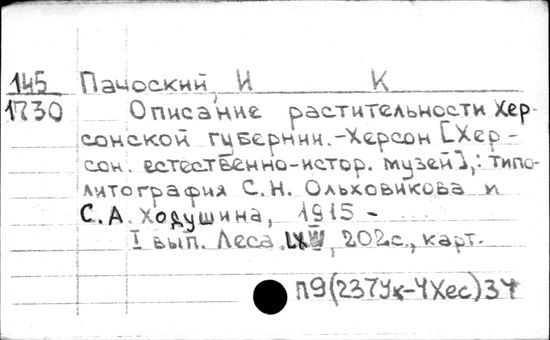 145 Пачоский, И К
1730 Описание растительности Хер-
сонской губернии.-Херсон [Хер-
сон. естественно-истор. музей],: типо-
литография С.Н. Ольховикова и
С.А. Ходушина, 1915 -
I вып. Леса. 202с., карт.
П9(237Ук-4Хес)34